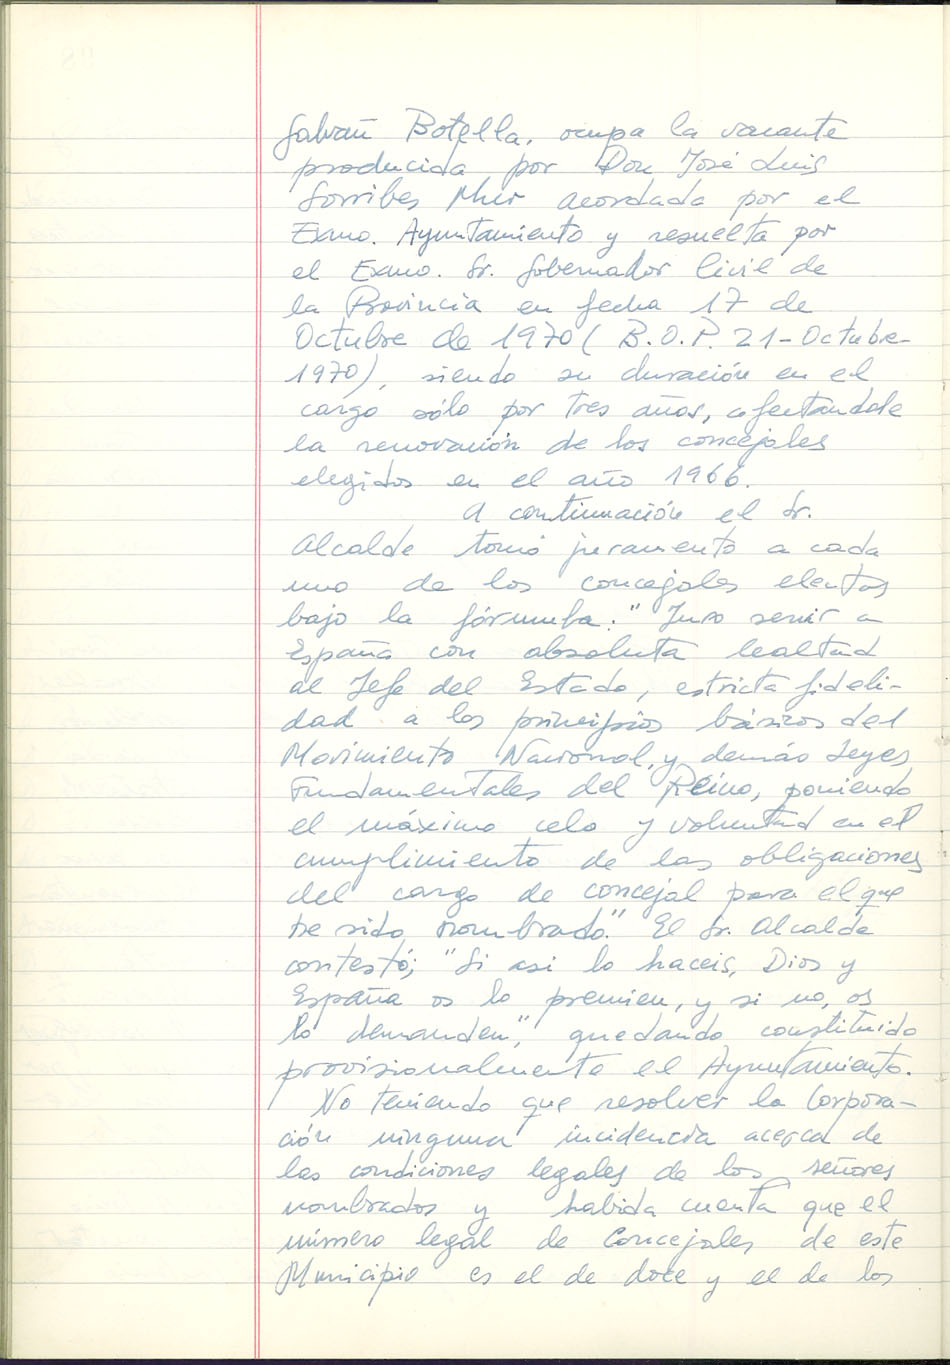 Galvañ Botella, ocupa la vacante
producida por Don José Luis
Sorribes Mur acordada por el
Exmo. Ayuntamiento y resuelta por
el Exmo. Sr. Gobernador Civil de
la Provincia en fecha 17 de
Octubre de 1970 ( B.O.P. 21-Octubre-
1970), siendo su duración en el
cargo sólo por tres años, afectandole
la renovación de los concejales
elegidos en el año 1966.
A continuación el Sr.
Alcalde tomó juramento a cada
uno de los concejales electos
bajo la fórmula: "Juro servir a
España con absoluta lealtad
al Jefe del Estado, estricta fideli-
dad a los principios básicos del
Movimiento Nacional, y demás Leyes
Fundamentales del Reino, poniendo
el máximo celo y voluntad en el
cumplimiento de las obligaciones
del cargo de concejal para el que
he sido nombrado." El Sr. Alcalde
contestó; "Si asi lo haceis, Dios y
España os lo premien, y si no, os
lo demanden", quedando constituido
provisionalmente el Ayuntamiento.
No teniendo que resolver la Corpora-
ción ninguna incidencia acerca de
las condiciones legales de los señores
nombrados y habida cuenta que el
número legal de Concejales de este
Municipio es el de doce y el de los